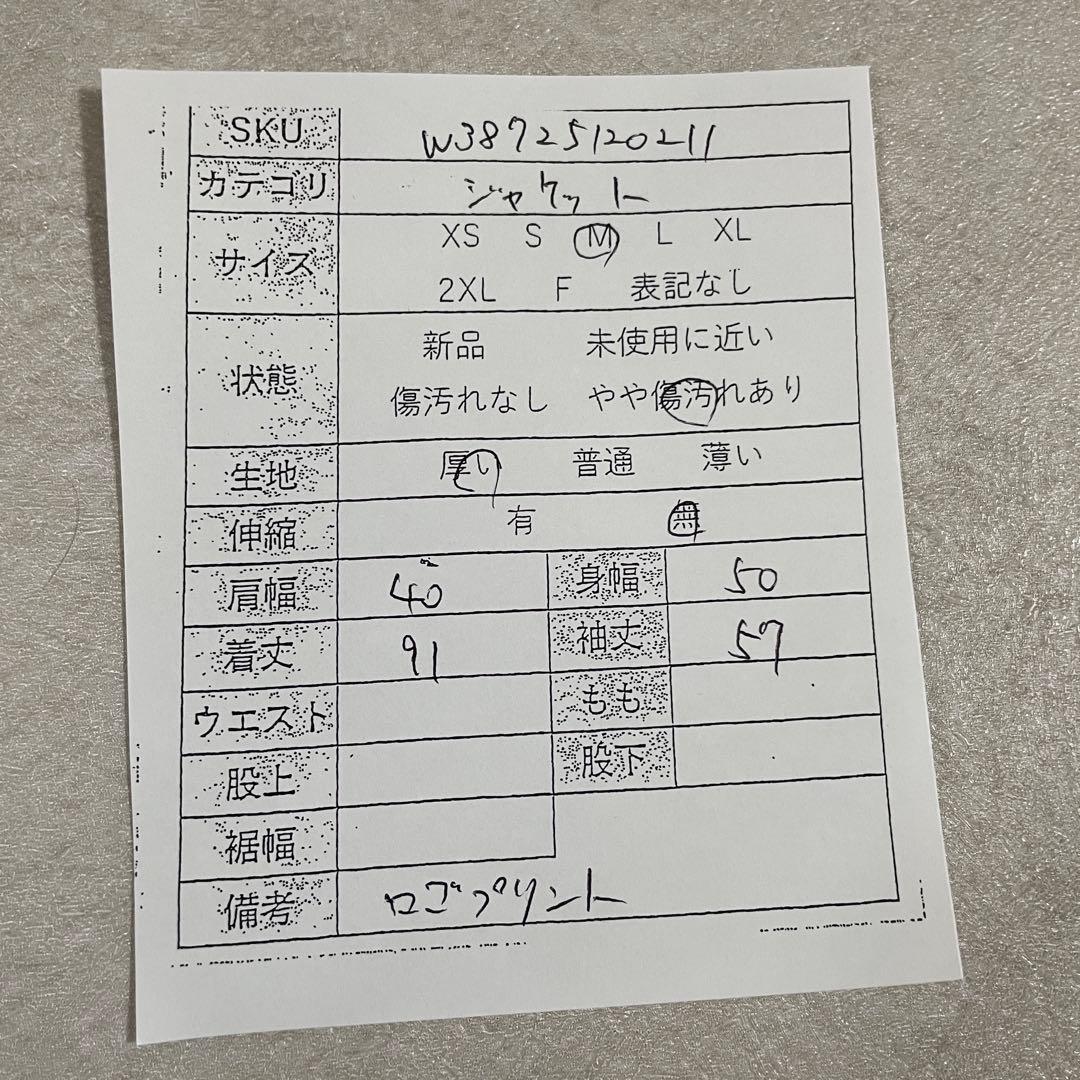 SKU W38725120211
カテゴリ ジャケット
サイズ XS S M L XL
2XL F 表記なし
状態 新品 未使用に近い
傷汚れなし やや傷汚れあり
生地 厚い 普通 薄い
伸縮 有 無
肩幅 40 身幅 50
着丈 91 袖丈 57
ウエスト もも
股上 股下
裾幅
備考 ロゴプリント